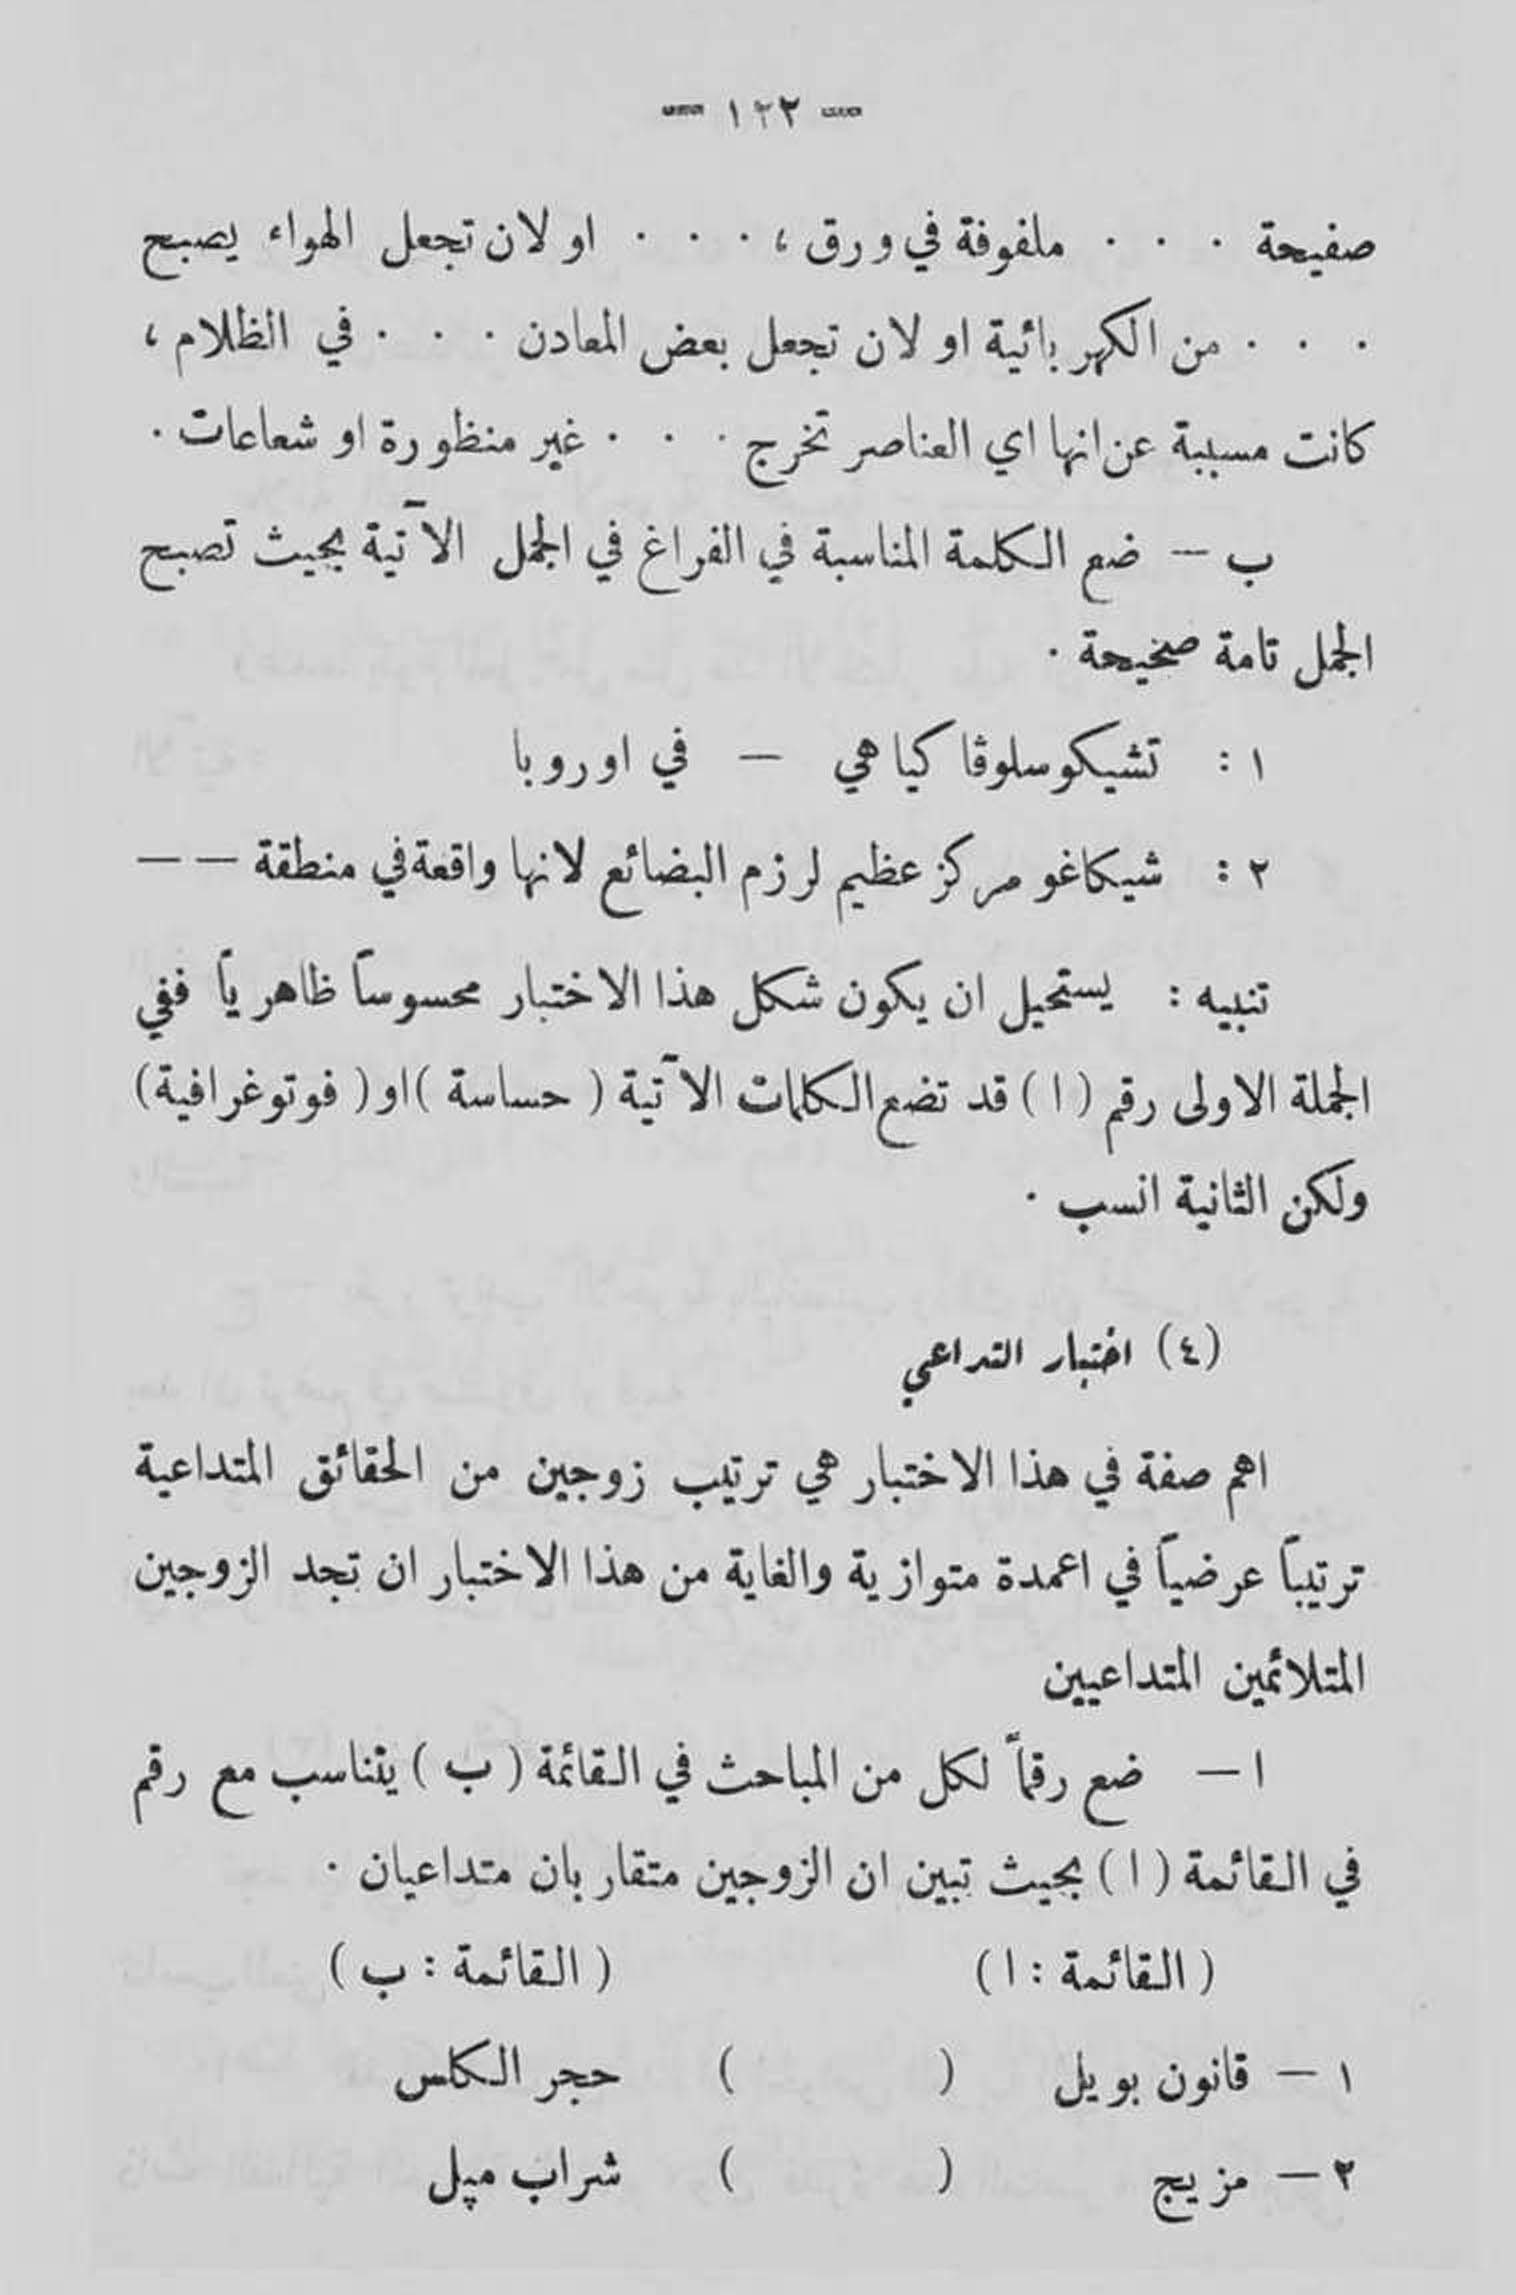 — ١٢٢ —
صفيحة . . . ملفوفة في ورق ، . . . او لان تجعل الهواء يصبح
. . . من الكهربائية او لان تجعل بعض المعادن . . . في الظلام ،
كانت مسببة عن انها اي العناصر تخرج . . . غير منظورة او شعاعات .
ب — ضع الكلمة المناسبة في الفراغ في الجمل الآتية بحيث تصبح
الجمل تامة صحيحة .
١ : تشيكوسلوڤاكيا هي — في اوروبا
٢ : شيكاغو مركز عظيم لرزم البضائع لانها واقعة في منطقة — —
تنبيه : يستحيل ان يكون شكل هذا الاختبار محسوساً ظاهرياً ففي
الجملة الاولى رقم ( ا ) قد تضع الكلمات الآتية ( حساسة ) او ( فوتوغرافية )
ولكن الثانية انسب .
(٤) اختبار التداعي
اهم صفة في هذا الاختبار هي ترتيب زوجين من الحقائق المتداعية
ترتيباً عرضياً في اعمدة متوازية والغاية من هذا الاختبار ان تجد الزوجين
المتلائمين المتداعيين
ا — ضع رقماً لكل من المباحث في القائمة ( ب ) يتناسب مع رقم
في القائمة ( ا ) بحيث تبين ان الزوجين متقاربان متداعيان .
( القائمة : ا ) ( القائمة : ب )
١ — قانون بويل ( ) حجر الكلس
٢ — مزيج ( ) شراب ميپل